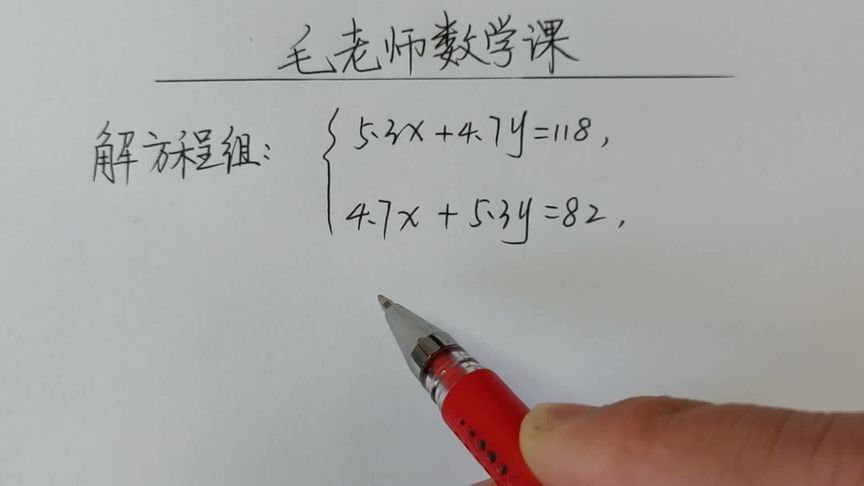 毛老师数学课
解方程组：
5.3x+4.7y=118，
4.7x+5.3y=82，